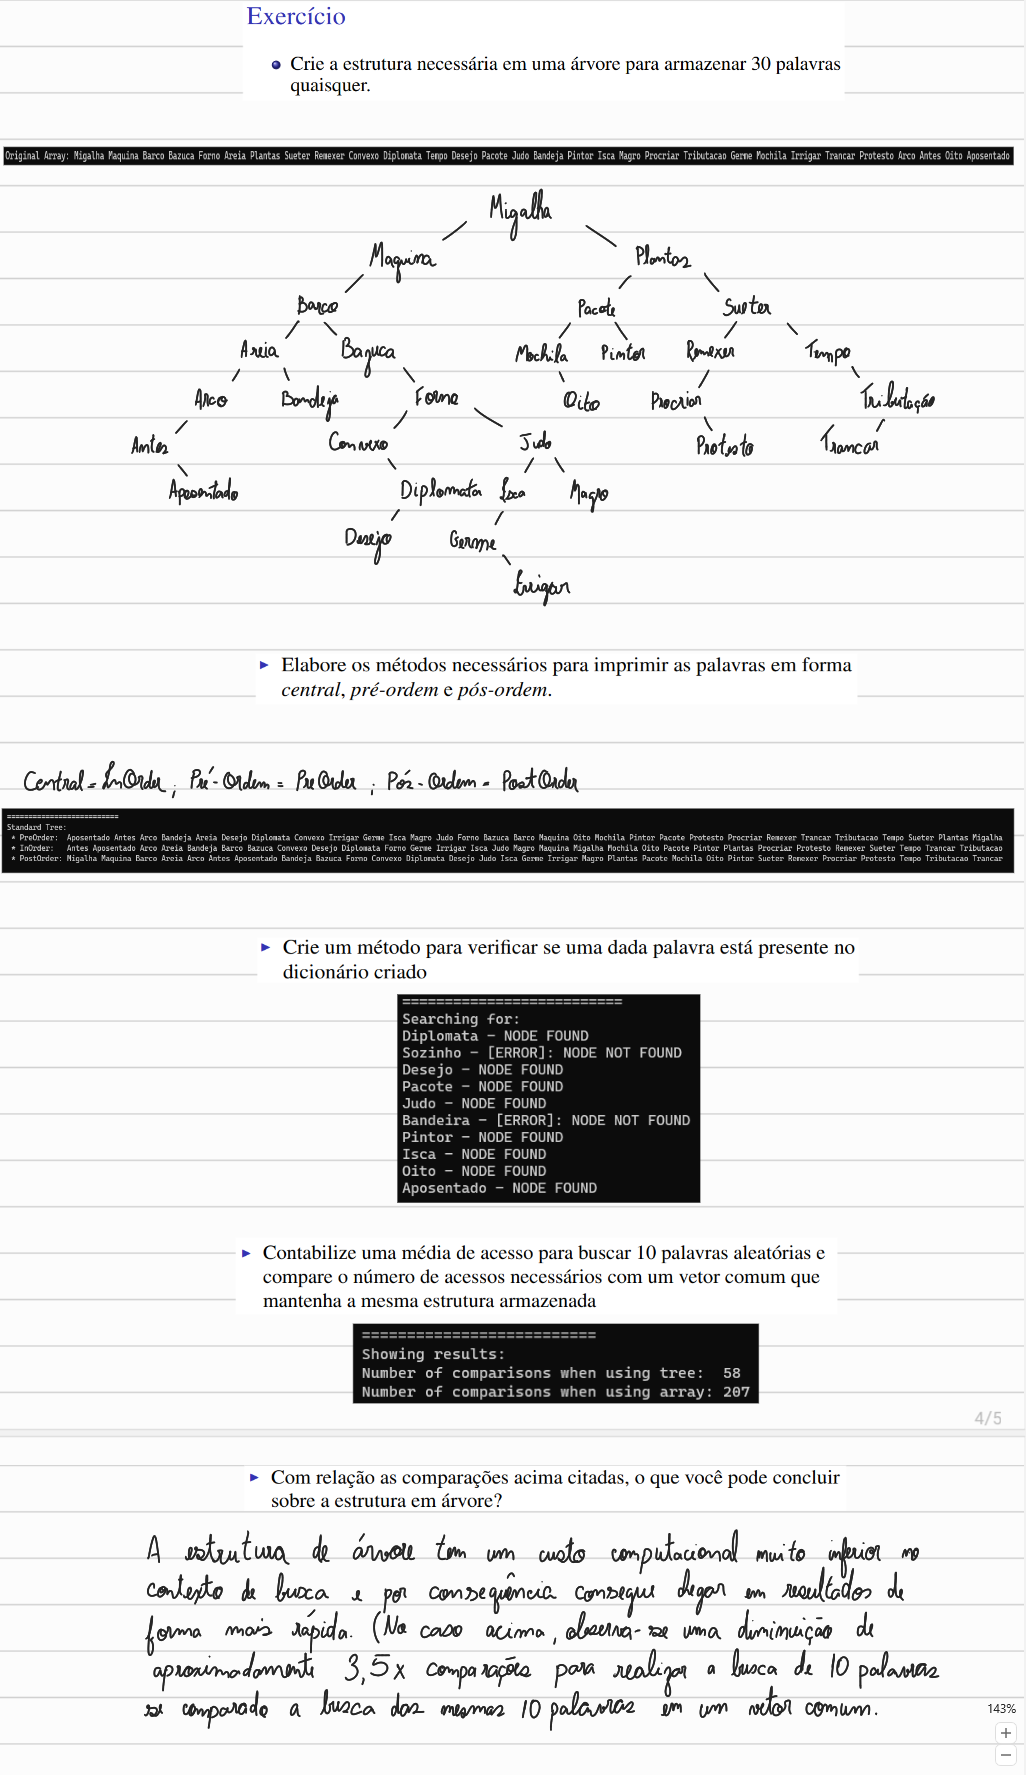 Exercício
Crie a estrutura necessária em uma árvore para armazenar 30 palavras
quaisquer.
Original Array: Migalha Maquina Barco Bazuca Forno Areia Plantas Sueter Remexer Convexo Diplomata Tempo Desejo Pacote Judo Bandeja Pintor Isca Magro Procriar Tributacao Germe Mochila Irrigar Trancar Protesto Arco Antes Oito Aposentado
Migalha
Maquina Plantas
Barco Pacote Sueter
Areia Bazuca Mochila Pintor Remexer Tempo
Arco Bandeja Forno Oito Procriar Tributação
Antes Convexo Judo Protesto Trancar
Aposentado Diplomata Isca Magro
Desejo Germe
Irrigar
Elabore os métodos necessários para imprimir as palavras em forma
central, pré-ordem e pós-ordem.
Central = InOrder ; Pré-Ordem = PreOrder ; Pós-Ordem = PostOrder
==========================
Standard Tree:
* PreOrder: Aposentado Antes Arco Bandeja Areia Desejo Diplomata Convexo Irrigar Germe Isca Magro Judo Forno Bazuca Barco Maquina Oito Mochila Pintor Pacote Protesto Procriar Remexer Trancar Tributacao Tempo Sueter Plantas Migalha
* InOrder: Antes Aposentado Arco Areia Bandeja Barco Bazuca Convexo Desejo Diplomata Forno Germe Irrigar Isca Judo Magro Maquina Migalha Mochila Oito Pacote Pintor Plantas Procriar Protesto Remexer Sueter Tempo Trancar Tributacao
* PostOrder: Migalha Maquina Barco Areia Arco Antes Aposentado Bandeja Bazuca Forno Convexo Diplomata Desejo Judo Isca Germe Irrigar Magro Plantas Pacote Mochila Oito Pintor Sueter Remexer Procriar Protesto Tempo Tributacao Trancar
Crie um método para verificar se uma dada palavra está presente no
dicionário criado
==========================
Searching for:
Diplomata - NODE FOUND
Sozinho - [ERROR]: NODE NOT FOUND
Desejo - NODE FOUND
Pacote - NODE FOUND
Judo - NODE FOUND
Bandeira - [ERROR]: NODE NOT FOUND
Pintor - NODE FOUND
Isca - NODE FOUND
Oito - NODE FOUND
Aposentado - NODE FOUND
Contabilize uma média de acesso para buscar 10 palavras aleatórias e
compare o número de acessos necessários com um vetor comum que
mantenha a mesma estrutura armazenada
==========================
Showing results:
Number of comparisons when using tree: 58
Number of comparisons when using array: 207
4/5
Com relação as comparações acima citadas, o que você pode concluir
sobre a estrutura em árvore?
A estrutura de árvore tem um custo computacional muito inferior no
contexto de busca e por consequência consegue chegar em resultados de
forma mais rápida. (No caso acima, observa-se uma diminuição de
aproximadamente 3,5x comparações para realizar a busca de 10 palavras
se comparado a busca das mesmas 10 palavras em um vetor comum.
143%